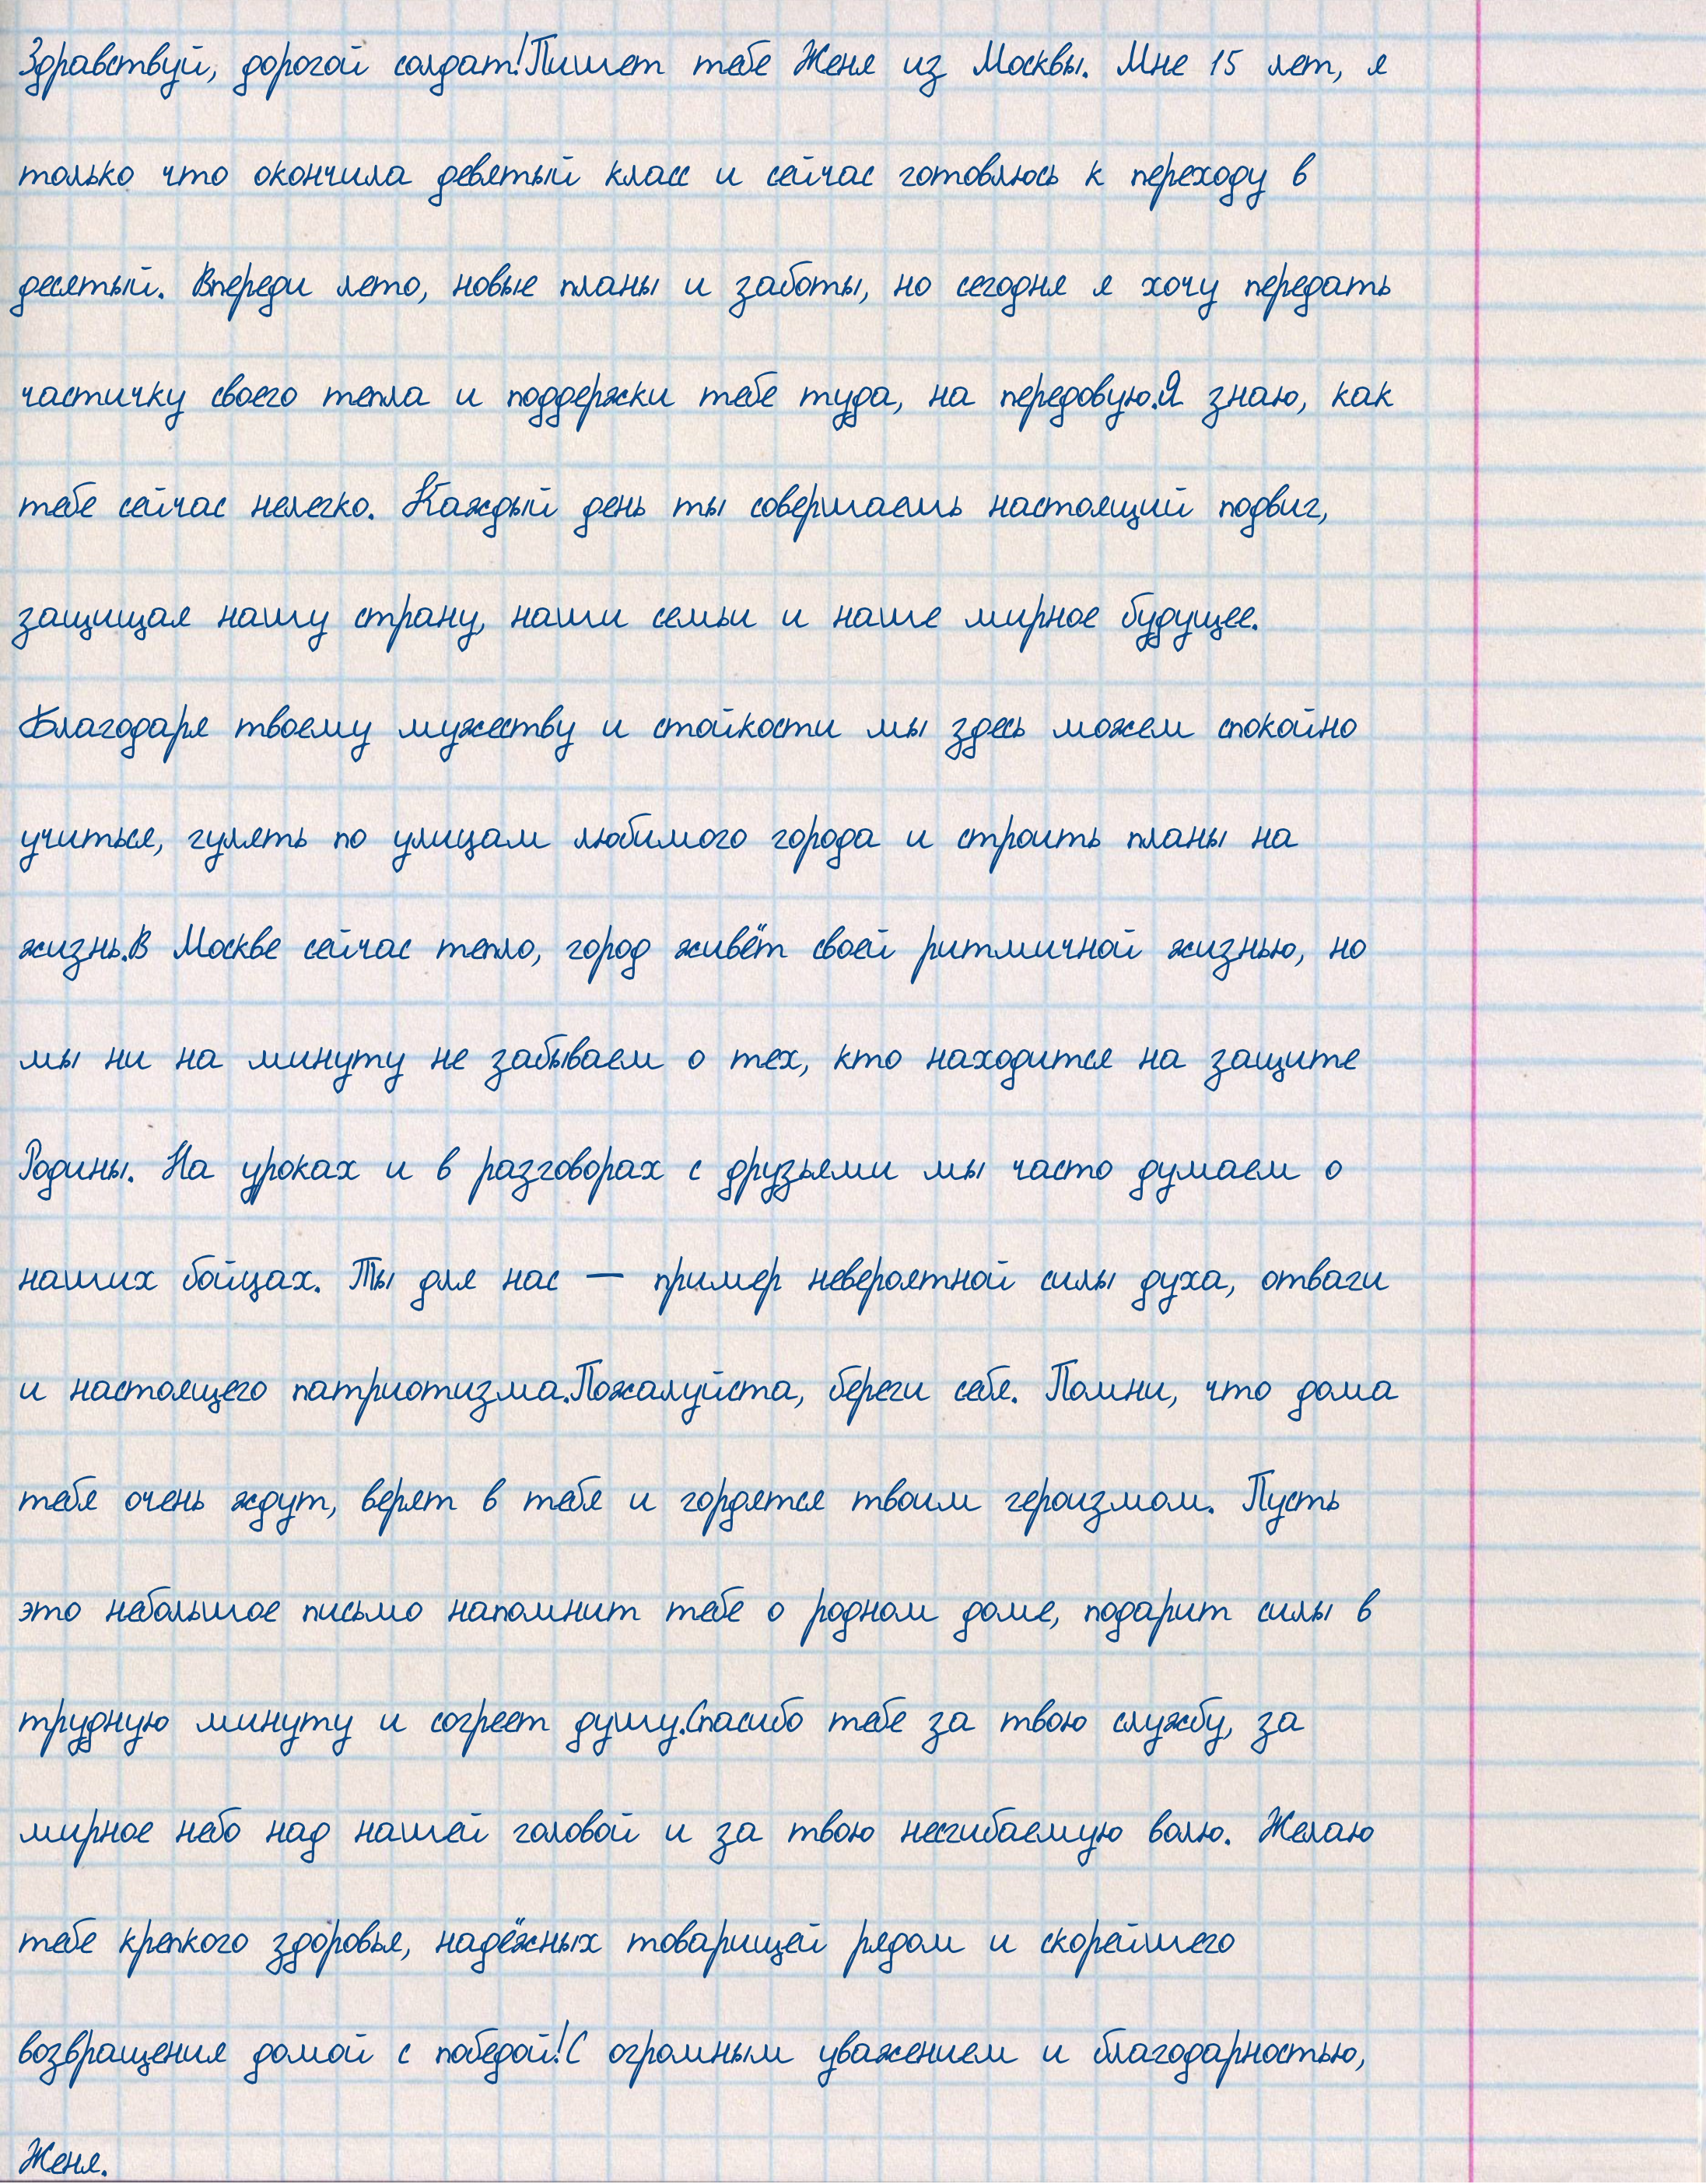 Здравствуй, дорогой солдат!Пишет тебе Женя из Москвы. Мне 15 лет, я
только что окончила девятый класс и сейчас готовлюсь к переходу в
десятый. Впереди лето, новые планы и заботы, но сегодня я хочу передать
частичку своего тепла и поддержки тебе туда, на передовую.Я знаю, как
тебе сейчас нелегко. Каждый день ты совершаешь настоящий подвиг,
защищая нашу страну, наши семьи и наше мирное будущее.
Благодаря твоему мужеству и стойкости мы здесь можем спокойно
учиться, гулять по улицам любимого города и строить планы на
жизнь.В Москве сейчас тепло, город живёт своей ритмичной жизнью, но
мы ни на минуту не забываем о тех, кто находится на защите
Родины. На уроках и в разговорах с друзьями мы часто думаем о
наших бойцах. Ты для нас — пример невероятной силы духа, отваги
и настоящего патриотизма.Пожалуйста, береги себя. Помни, что дома
тебя очень ждут, верят в тебя и гордятся твоим героизмом. Пусть
это небольшое письмо напомнит тебе о родном доме, подарит силы в
трудную минуту и согреет душу.Спасибо тебе за твою службу, за
мирное небо над нашей головой и за твою несгибаемую волю. Желаю
тебе крепкого здоровья, надёжных товарищей рядом и скорейшего
возвращения домой с победой!С огромным уважением и благодарностью,
Женя.